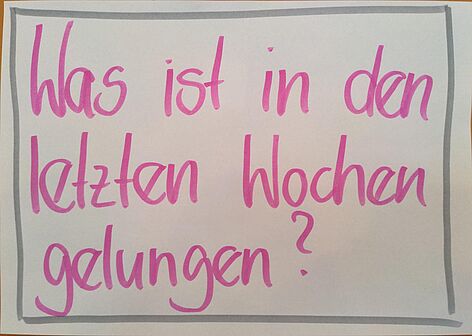 Was ist in den
letzten Wochen
gelungen?